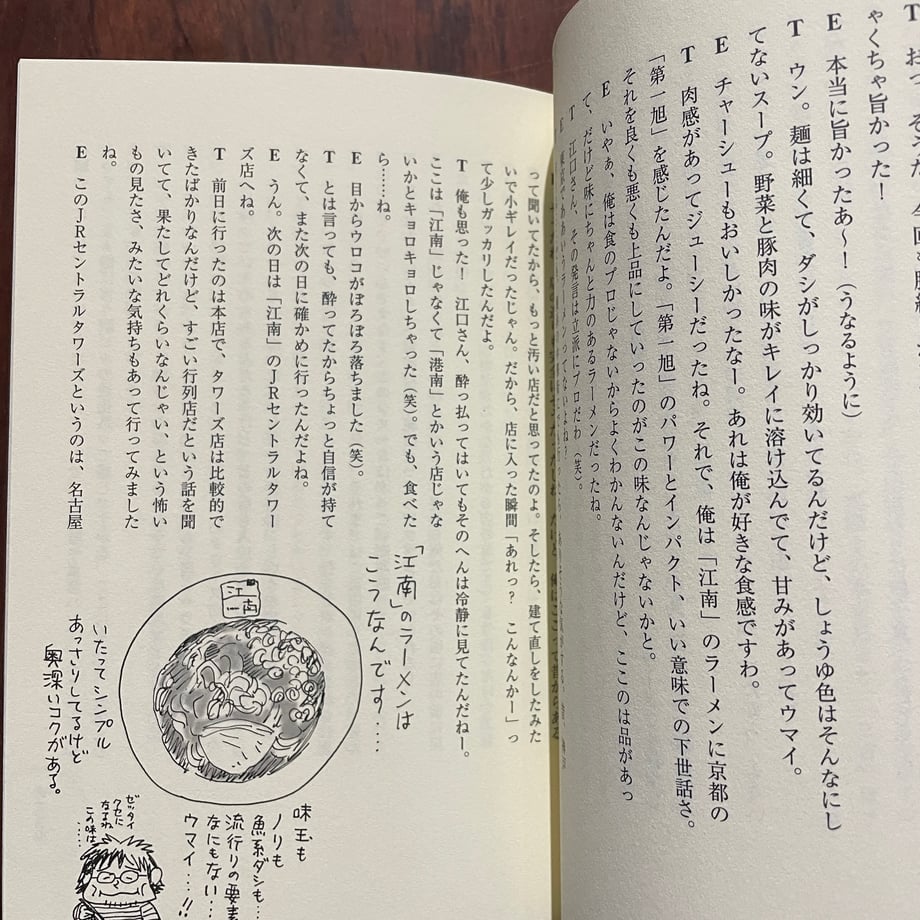 ゃくちゃ旨かった！
E　本当に旨かったあ～！（うなるように）
T　ウン。麺は細くて、ダシがしっかり効いてるんだけど、しょうゆ色はそんなにし
てないスープ。野菜と豚肉の味がキレイに溶け込んでて、甘みがあってウマイ。
E　チャーシューもおいしかったなー。あれは俺が好きな食感ですわ。
T　肉感があってジューシーだったね。それで、俺は「江南」のラーメンに京都の
「第一旭」を感じたんだよ。「第一旭」のパワーとインパクト、いい意味での下世話さ。
それを良くも悪くも上品にしていったのがこの味なんじゃないかと。
E　いやぁ、俺は食のプロじゃないからよくわかんないんだけど、ここのは品があっ
て、だけど味にちゃんと力のあるラーメンだったね。
T　江口さん、その発言は立派にプロだわ（笑）。
って聞いてたから、もっと汚い店だと思ってたのよ。そしたら、建て直しをしたみた
いで小ギレイだったじゃん。だから、店に入った瞬間「あれっ？　こんなんかー」っ
て少しガッカリしたんだよ。
T　俺も思った！　江口さん、酔っ払ってはいてもそのへんは冷静に見てたんだねー。
ここは「江南」じゃなくて「港南」とかいう店じゃな
いかとキョロキョロしちゃった（笑）。でも、食べた
ら……ね。
E　目からウロコがぽろぽろ落ちました（笑）。
T　とは言っても、酔ってたからちょっと自信が持て
なくて、また次の日に確かめに行ったんだよね。
E　うん。次の日は「江南」のJRセントラルタワー
ズ店へね。
T　前日に行ったのは本店で、タワーズ店は比較的で
きたばかりなんだけど、すごい行列店だという話を聞
いてて、果たしてどれくらいなんじゃい、という怖い
もの見たさ、みたいな気持ちもあって行ってみました
ね。
E　このJRセントラルタワーズというのは、名古屋
「江南」のラーメンは
こうなんです‥‥
江南
いたってシンプル
あっさりしてるけど
奥深いコクがある。
味玉も
ノリも
魚系ダシも‥
流行りの要素
なにもない‥‥
ウマイ‥‥!!
ゼッタイ
クセに
なるね
この味は‥‥